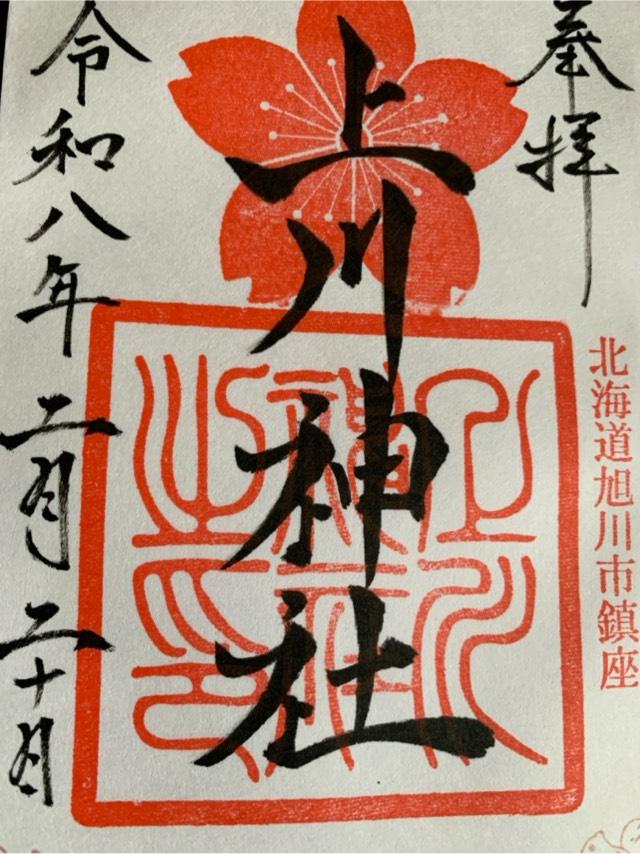 奉拝
北海道旭川市鎮座
上川神社
令和八年二月二十日